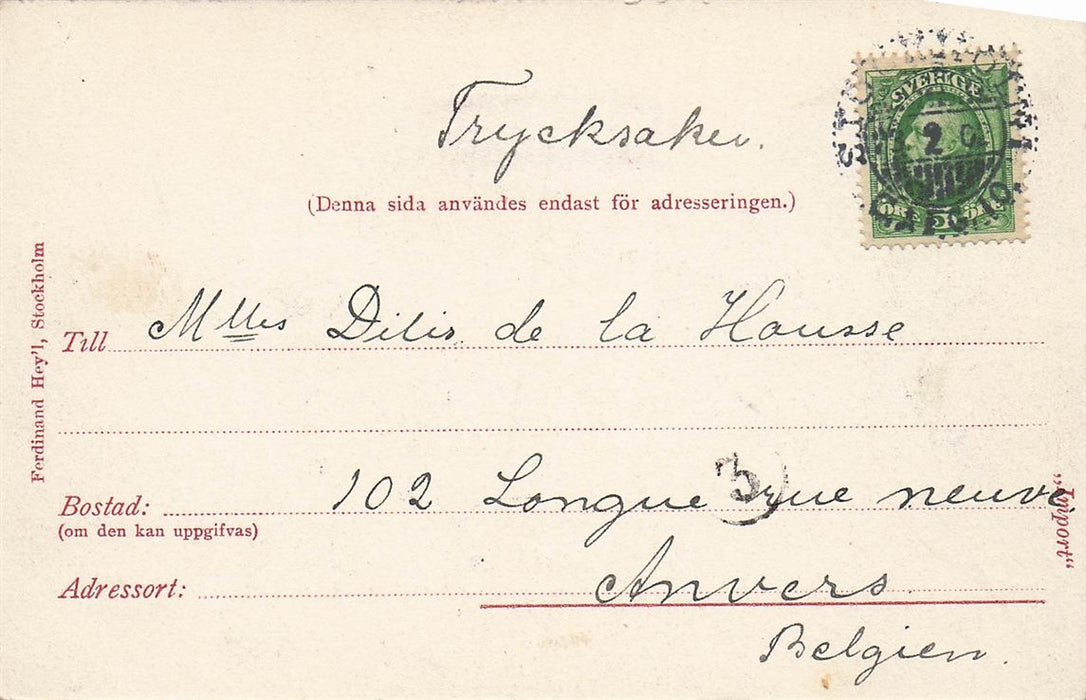 Trycksaker.
(Denna sida användes endast för adresseringen.)
SVERIGE
ÖRE 5 ÖRE
STOCKHOLM
2
Ferdinand Hey'l, Stockholm
Till Mlles Dilis de la Housse
Bostad: 102 Longue rue neuve
(om den kan uppgifvas)
3
„Import“
Adressort: Anvers
Belgien.